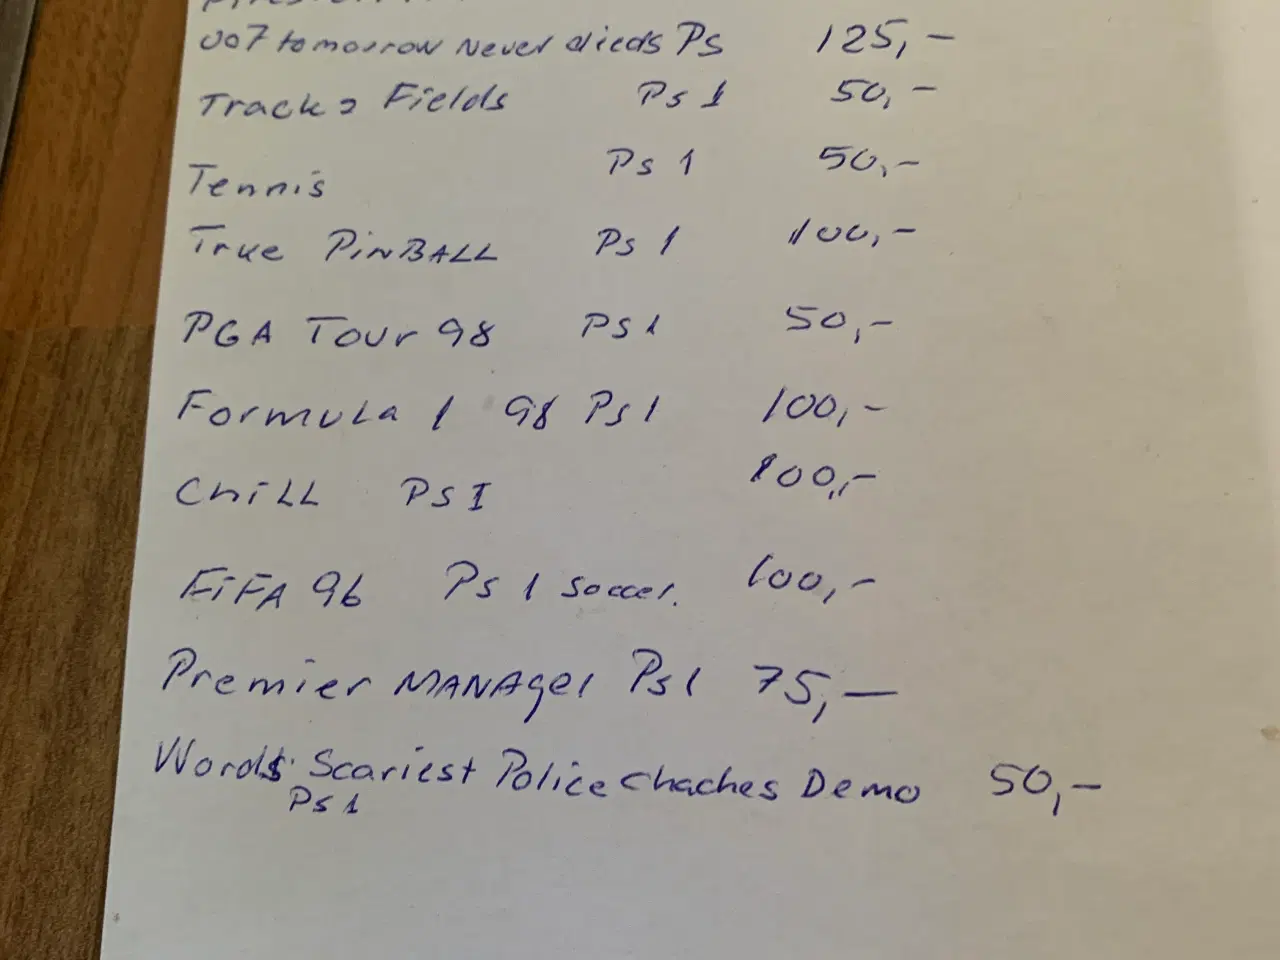 007 tomorrow Never dieds Ps 125,-
Track 2 Fields Ps 1 50,-
Tennis Ps 1 50,-
True PinBALL Ps 1 100,-
PGA Tour 98 PS1 50,-
Formula 1 98 Ps 1 100,-
Chill PS I 100,-
FiFA 96 Ps 1 Soccer. 100,-
Premier MANAger Ps1 75,-
Words Scariest Police Chaches Demo 50,-
Ps 1